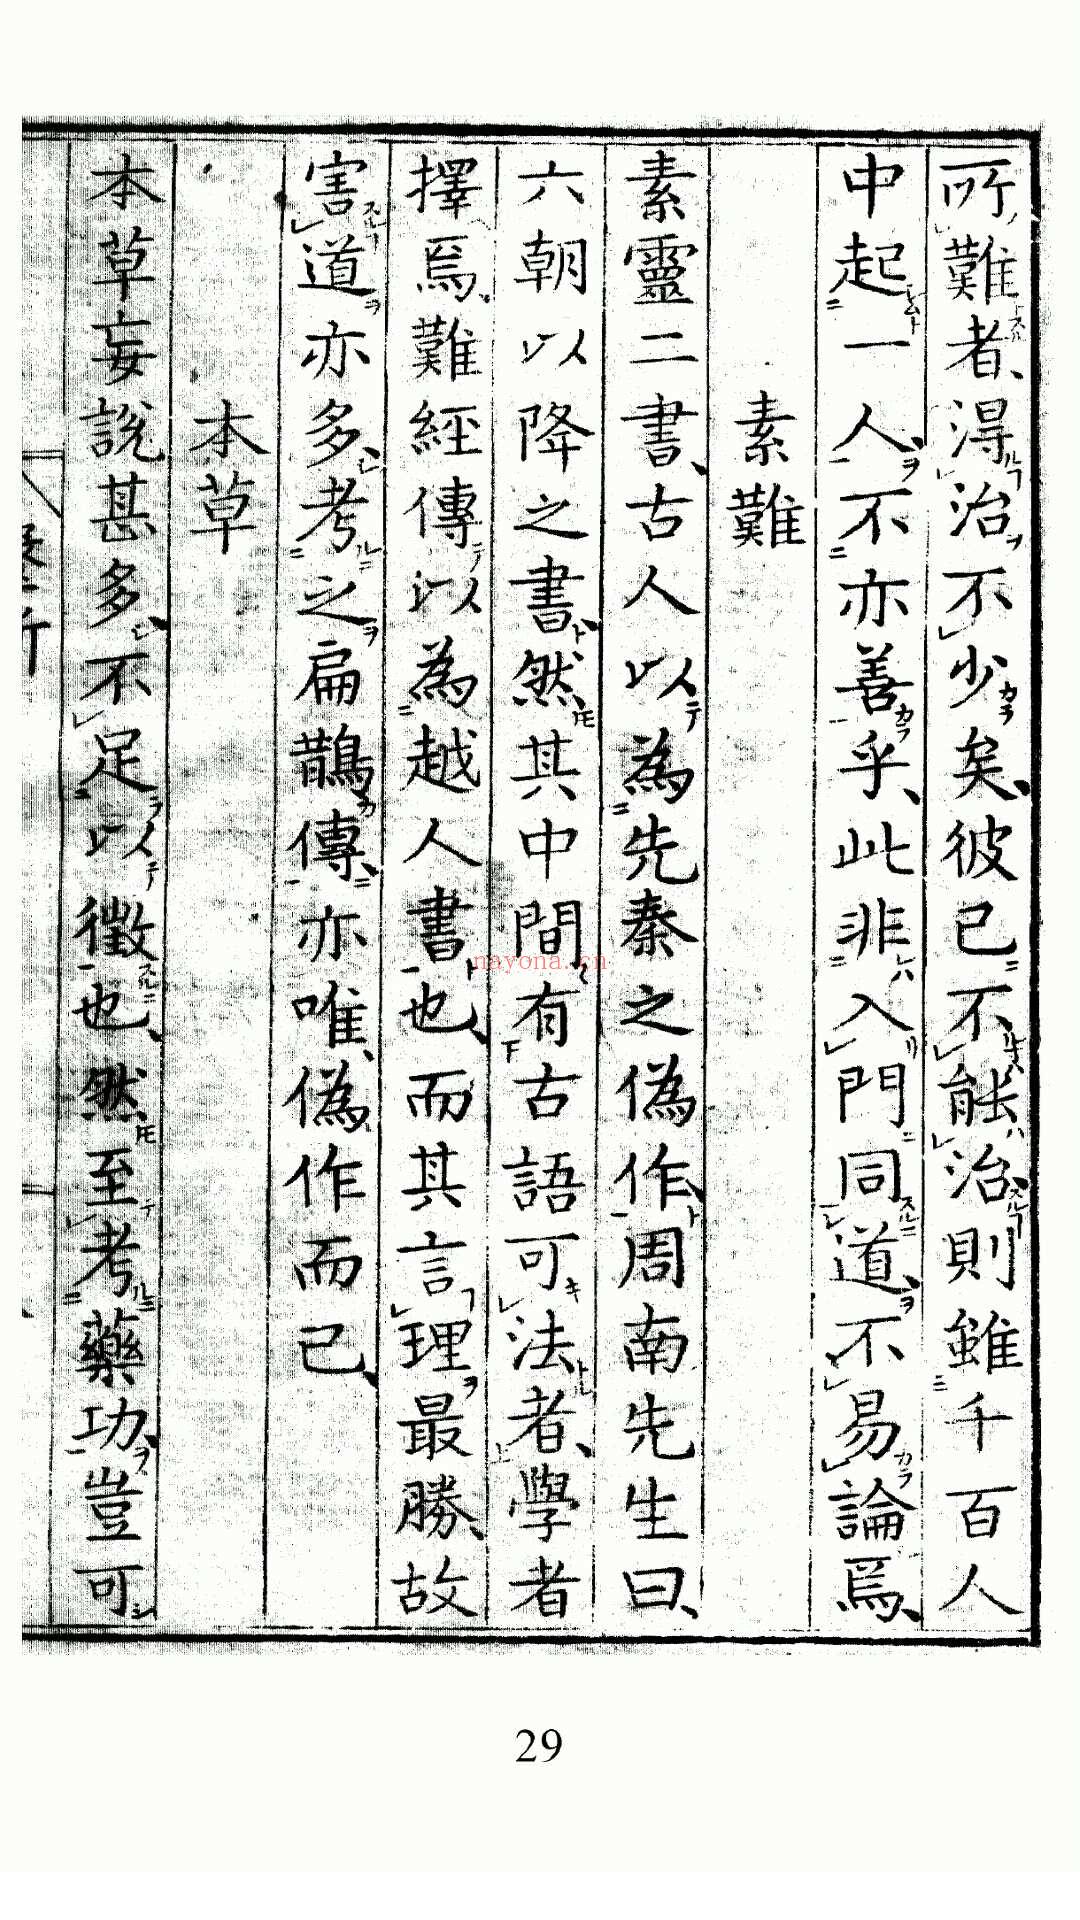 所難者、得治不少矣、彼已不能治、則雖千百人
中起一人、不亦善乎、此非入門同道、不易論焉、
素難
素靈二書、古人以為先秦之偽作、周南先生曰、
六朝以降之書、然其中間有古語可法者、學者
擇焉、難經傳以為越人書也、而其言理最勝、故
害道亦多、考之扁鵲傳、亦唯偽作而已、
本草
本草妄說甚多、不足以徵也、然至考藥功、豈可
29
nayona.cn